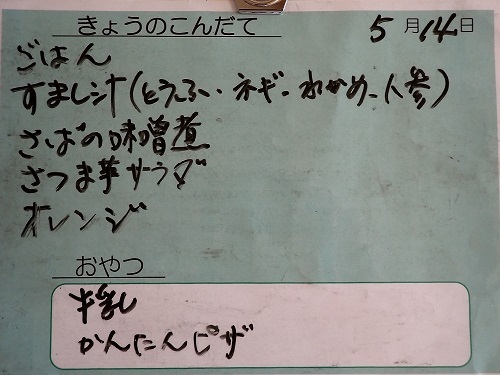 きょうのこんだて 5月14日
ごはん
すまし汁(とうふ、ネギ、わかめ、人参)
さばの味噌煮
さつま芋サラダ
オレンジ
おやつ
牛乳
かんたんピザ